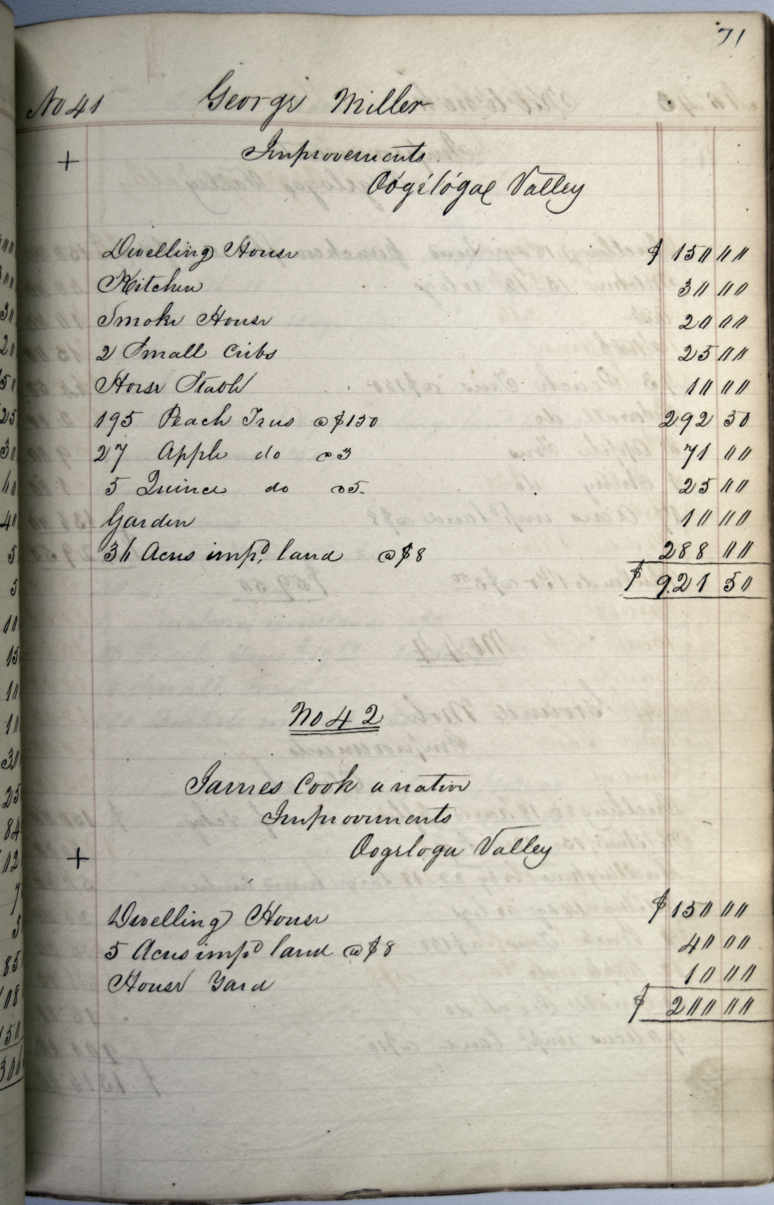 71
No 41 George Miller
+ Improvements
Oógélógae Valley
Dwelling House $ 150 00
Kitchen 30 00
Smoke House 20 00
2 Small Cribs 25 00
Horse Stable 10 00
195 Peach Trees @ $1 50 292 50
27 Apple do @ 3 71 00
5 Quince do @ 5. 25 00
Garden 10 00
36 Acres impd. land @ $8 288 00
$ 921 50
No 42
James Cook a native
Improvements
+ Oogeloga Valley
Dwelling House $ 150 00
5 Acres impd land @ $8 40 00
House Yard 10 00
$ 200 00